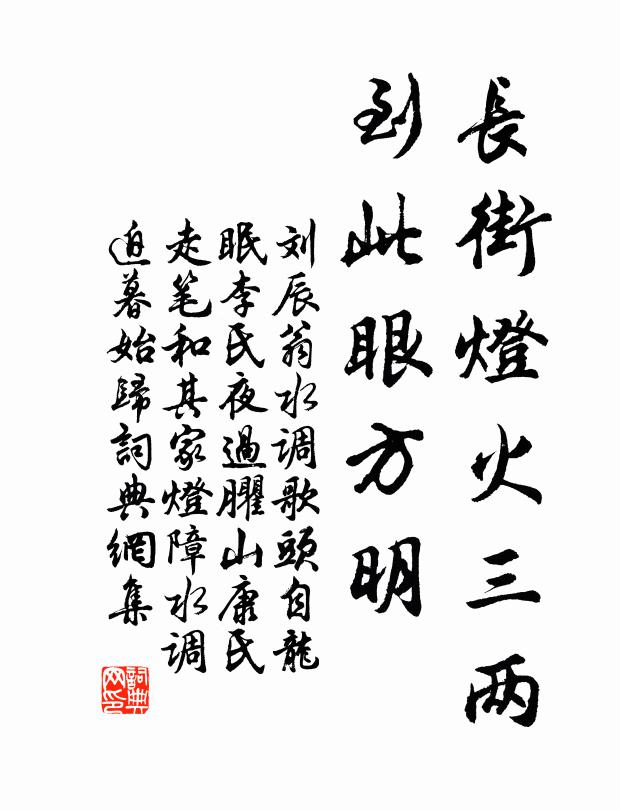 長街燈火三两
到此眼方明
刘辰翁水调歌頭自龍
眠李氏夜過臞山康氏
走笔和其家燈障水调
迫暮始歸詞典網集
詞典
网印